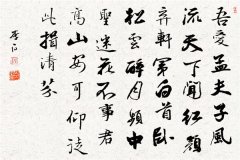 吾愛孟夫子風
流天下聞紅顏
弃軒冕白首卧
松雲醉月頻中
聖迷花不事君
高山安可仰徒
此揖清芬